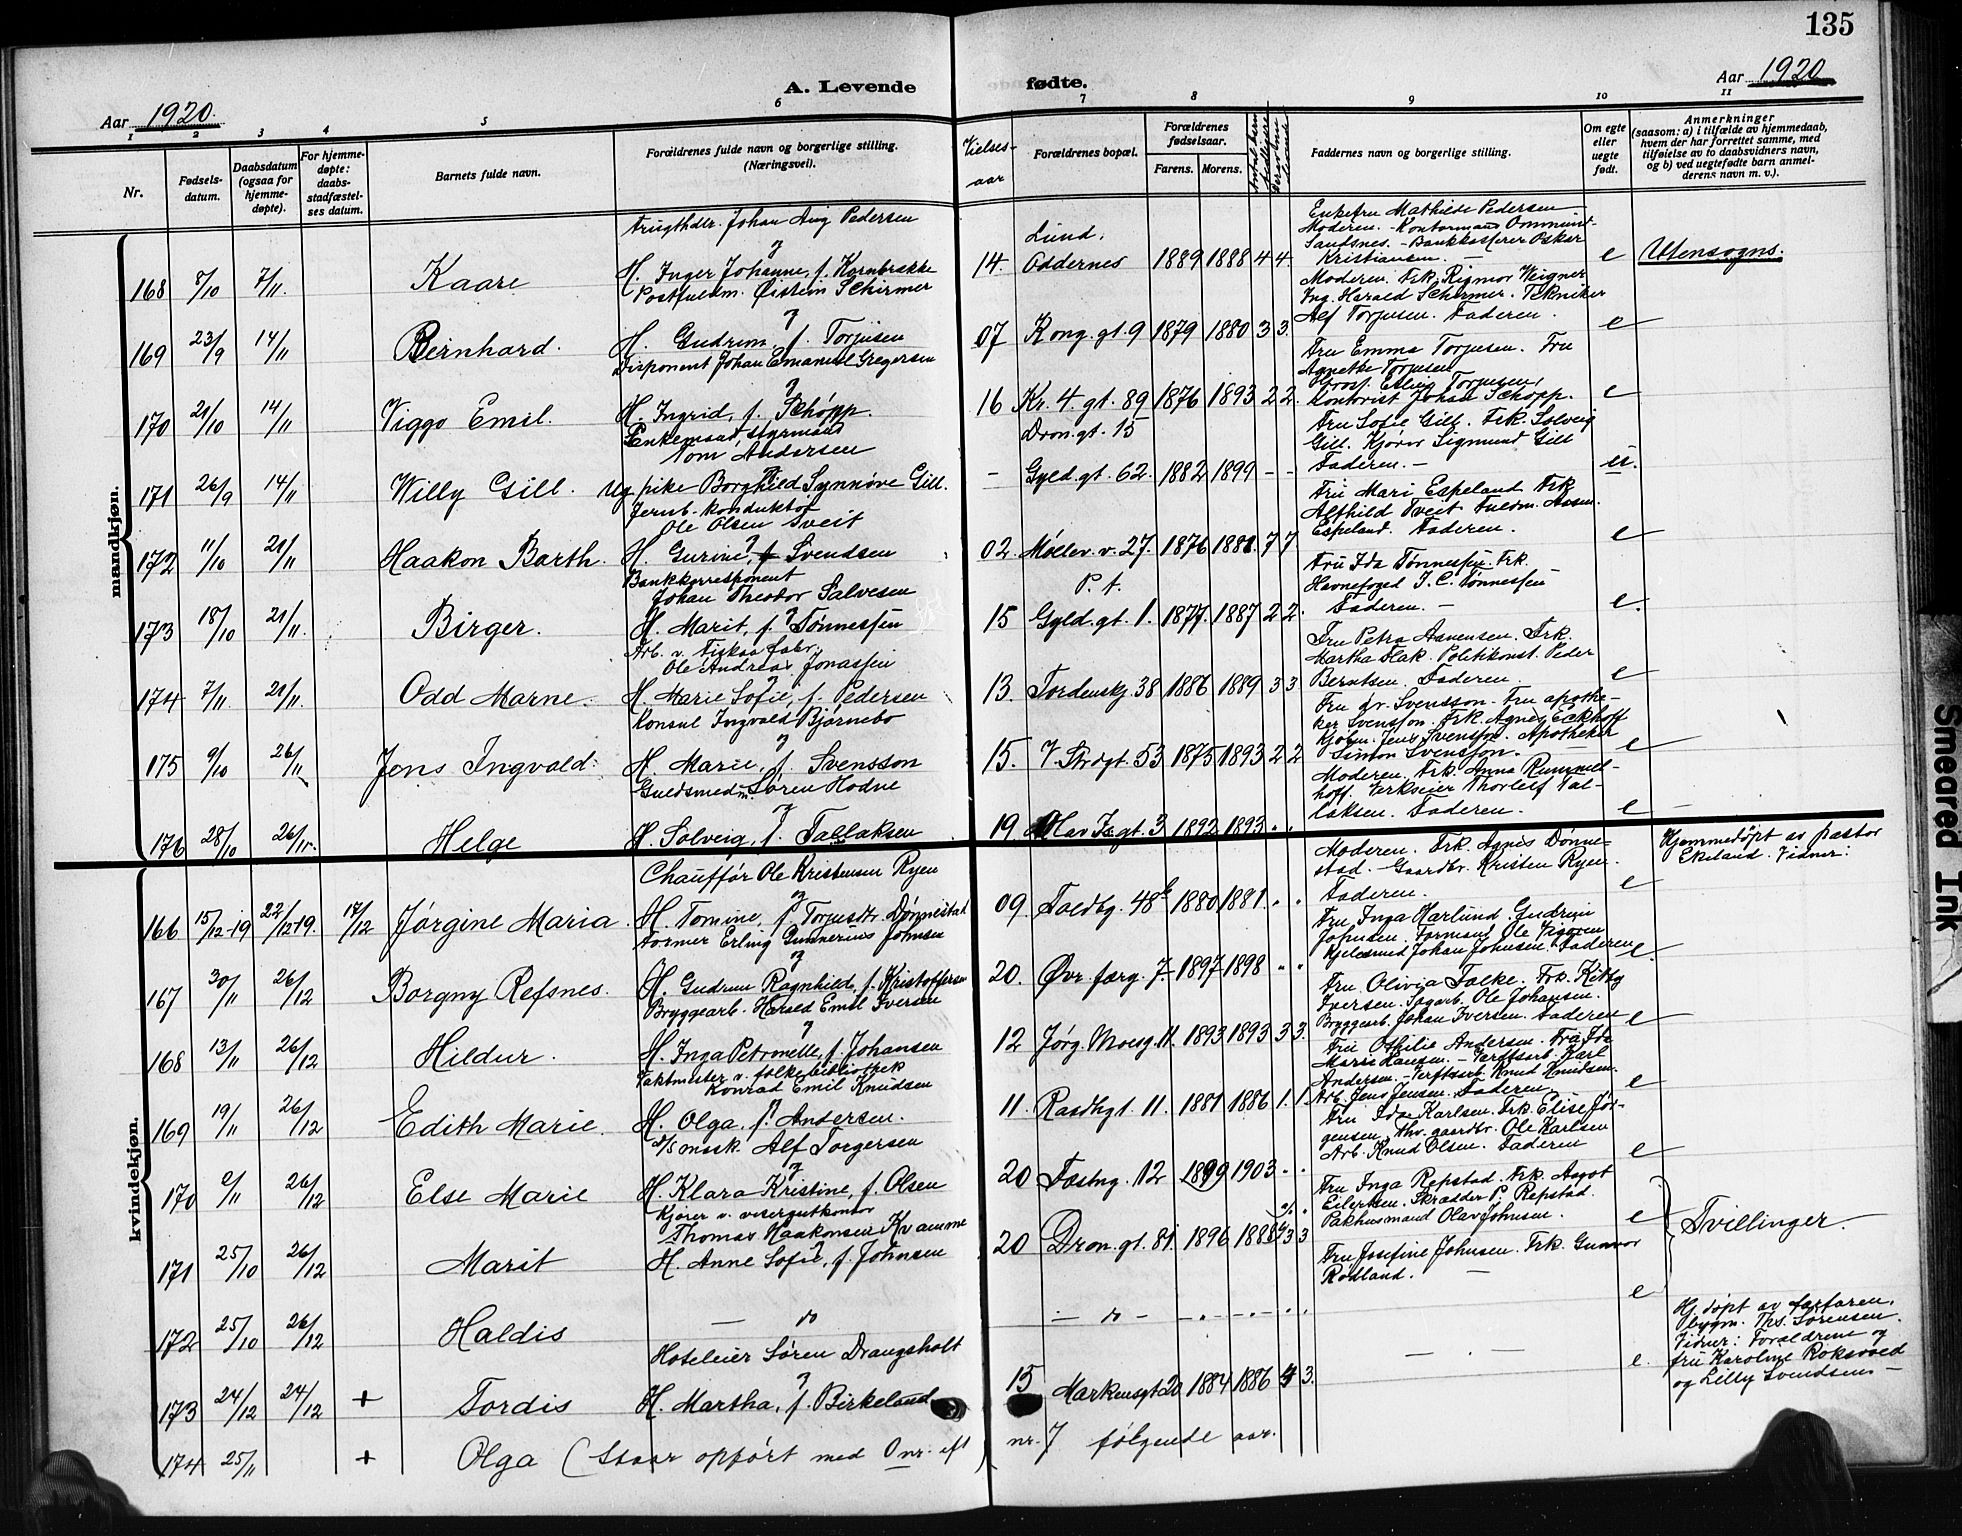 135
A. Levende
fødte.
Aar 1920.
Aar 1920
1 2 3 4 5 6 7 8 9 10 11
Nr.
Fødsels-
datum.
Daabsdatum
(ogsaa for
hjemme-
døpte).
For hjemme-
døpte:
daabs-
stadfæstel-
ses datum.
Barnets fulde navn.
Forældrenes fulde navn og borgerlige stilling.
(Næringsvei).
Vielses-
aar
Forældrenes bopæl.
Forældrenes
fødselsaar.
Farens. Morens.
Faddernes navn og borgerlige stilling.
Om egte
eller
uegte
født.
Anmerkninger
(saasom: a) i tilfælde av hjemmedaab,
hvem der har forrettet samme, med
tilføielse av to daabsvidners navn,
og b) ved uegtefødte barn anmel-
derens navn m. v.).
mandkjøn.
Frugthdlr. Johan Aug Pedersen
Enkefru Mathilde Pedersen
Moderen. Kontormand Ommund
Sandsnes. - Bankkasserer Oskar
Kristiansen. -
168 8/10 7/11. Kaare H. Inger Johanne, f. Kornbrække 14. Lund, Oddernes 1889 1888 4 4. e Utensogns.
Postfuldm. Øistein Schirmer
Moderen. Frk. Rigmor Weigner
Ing. Harald Schirmer. Tekniker
Alf Torjusen. Faderen.
169 23/9 14/11 Bernhard. H. Gudrun, f. Torjusen 07 Kong. gt. 9 1879 1880 3 3. e
Disponent Johan Emanuel Gregersen
Fru Emma Torjusen. Fru
Agnethe Torjusen
Grosf. Esling Torjusen,
Kontorist Johan Schøpp.
170 21/10 14/11 Viggo Emil. H. Ingrid, f. Schøpp. 16 Kr. 4. gt. 89 1876 1893 2 2. e
Enkemand, styrmand
Tom Andersen
Dron. gt. 15
Fru Sofie Gill. Frk. Solveig
Gill. Kjører Sigmund Gill
Faderen. -
171 26/9 14/11 Willy Gill. Ug. pike Borghild Synnøve Gill. - Gyld. gt. 62. 1882 1899 - - u.
Jernb. konduktør
Ole Olsen Tveit
Fru Mari Espeland Frk
Alfhild Tveit Fuldm. Aasm.
Espeland. Faderen.
172 11/10 21/11 Haakon Barth. H. Gurine, f. Svendsen 02. Møllev. v. 27. 1876 1881. 7 7 e
Bankkorrespondent
Johan Theodor Salvesen
P. t.
Fru Ida Tønnessen. Frk.
Havnefoged J. C. Tønnessen
Faderen. -
173 18/10 21/11. Birger. H. Marit, f. Tønnessen 15 Gyld. gt. 1. 1877. 1887 2 2. e.
Arb. v. Fiskaa fabr.
Ole Andreas Jonassen
Fru Petra Aanensen. Frk.
Martha Flak. Politikonst. Peder
Berntsen. Faderen.
174 7/11. 21/11. Odd Marne. H. Marie Sofie, f. Pedersen 13. Tordenskj. 38 1886 1889 3 3 e
Konsul Ingvald Bjørnebo
Fru dr. Svensson. Fru apothe-
ker Svensson. Frk. Agnes Eckhoff
Kjøbm. Jens Svensson. Apotheker
Simon Svensson. -
175 9/10 26/11 Jens Ingvald. H. Marie, f. Svensson 15. V. Strdgt. 53 1875 1893 2 2 e
Guldsmedm. Søren Hodne
Moderen. Frk. Anna Rummel-
hoff. Verkseier Thorleif Tal-
laksen. Faderen.
176 28/10 26/11. Helge H. Solveig, f. Tallaksen 19 Olav Ts gt. 3 1892 1893. . . e -
kvindekjøn.
Chauffør Ole Kristensen Ryen
Moderen. Frk. Agnes Dønne-
stad. Gaardbr. Kristen Ryen.
Faderen.
Hjemmedøpt av pastor
Ekeland. Vidner:
166 15/12-19 22/12-19. 17/12 Jørgine Maria H. Tomine, f. Torjusdr. Dønnestad 09. Toldbg. 48b 1880 1881. . . e
Former Erling Gunnerius Johnsen
Fru Inga Harlund. Gudrun
Johnsen. Formand Ole Viggo
Kjelsmed Johan Johnsen. Faderen
167 30/11 26/12 Borgny Refsnes. H. Gudrun Ragnhild, f. Kristoffersen 20. Øvr. færg. 7. 1897 1898 . . e.
Bryggearb. Harald Emil Iversen
Fru Olivia Falke. Frk. Kitty
Iversen. Sagarb. Ole Johansen.
Bryggearb. Johan Iversen. Faderen
168 13/11 26/12 Hildur. H. Inga Petronelle, f. Johansen 12 Jørg. Moesg. 11. 1893 1893 3 3. e
Vaktmester v. folkebibliothek
Konrad Emil Knudsen
Fru Othilie Andersen. Fra Ida
Marie Hansen. - Verftsarb. Karl
Andersen. - Verftsarb. Knud Knudsen.
Arb. Jens Jensen. Faderen.
169 19/11 26/12 Edith Marie. H. Olga, f. Andersen. 11. Raadhgt. 11. 1881 1886 1. 1. e
d/s mask. Alf Torgersen
Fru Ida Karlsen. Frk. Elise Jør-
gensen. Fhv. gaardbr. Ole Karlsen
Arb. Knud Olsen. Faderen
170 2/11 26/12 Else Marie H. Klara Kristine, f. Olsen 20 Fæstng. 12 1899 1903 . . e
Kjører v. visergutkontor
Thomas Haakonsen Kvamme
Fru Inga Repstad. Frk. Aagot
Eilertsen. Skrædder P. Repstad.
Pakhusmand Olav Johnsen.
171 25/10 26/12 Marit H. Anne Sofie, f. Johnsen 20 Dron. gt. 81. 1896 1888 3 3 e Tvillinger.
Fru Josefine Johnsen. Frk. Gunvor
Rødland. -
172 25/10 26/12 Haldis - do - do - e
Hoteleier Søren Drangsholt
Hj. døpt av farfaren,
bygm. Ths. Sørensen.
Vidner: Forældrene og
fru Karoline Roksvold
og Lilly Svendsen -
173 24/12 24/12 + Tordis H. Martha, f. Birkeland 15 Markensgt 20 1884 1886 4 3. e.
174 25/11 + Olga (Staar opført med O nr. eft nr. 7 følgende aar.
Smeared Ink